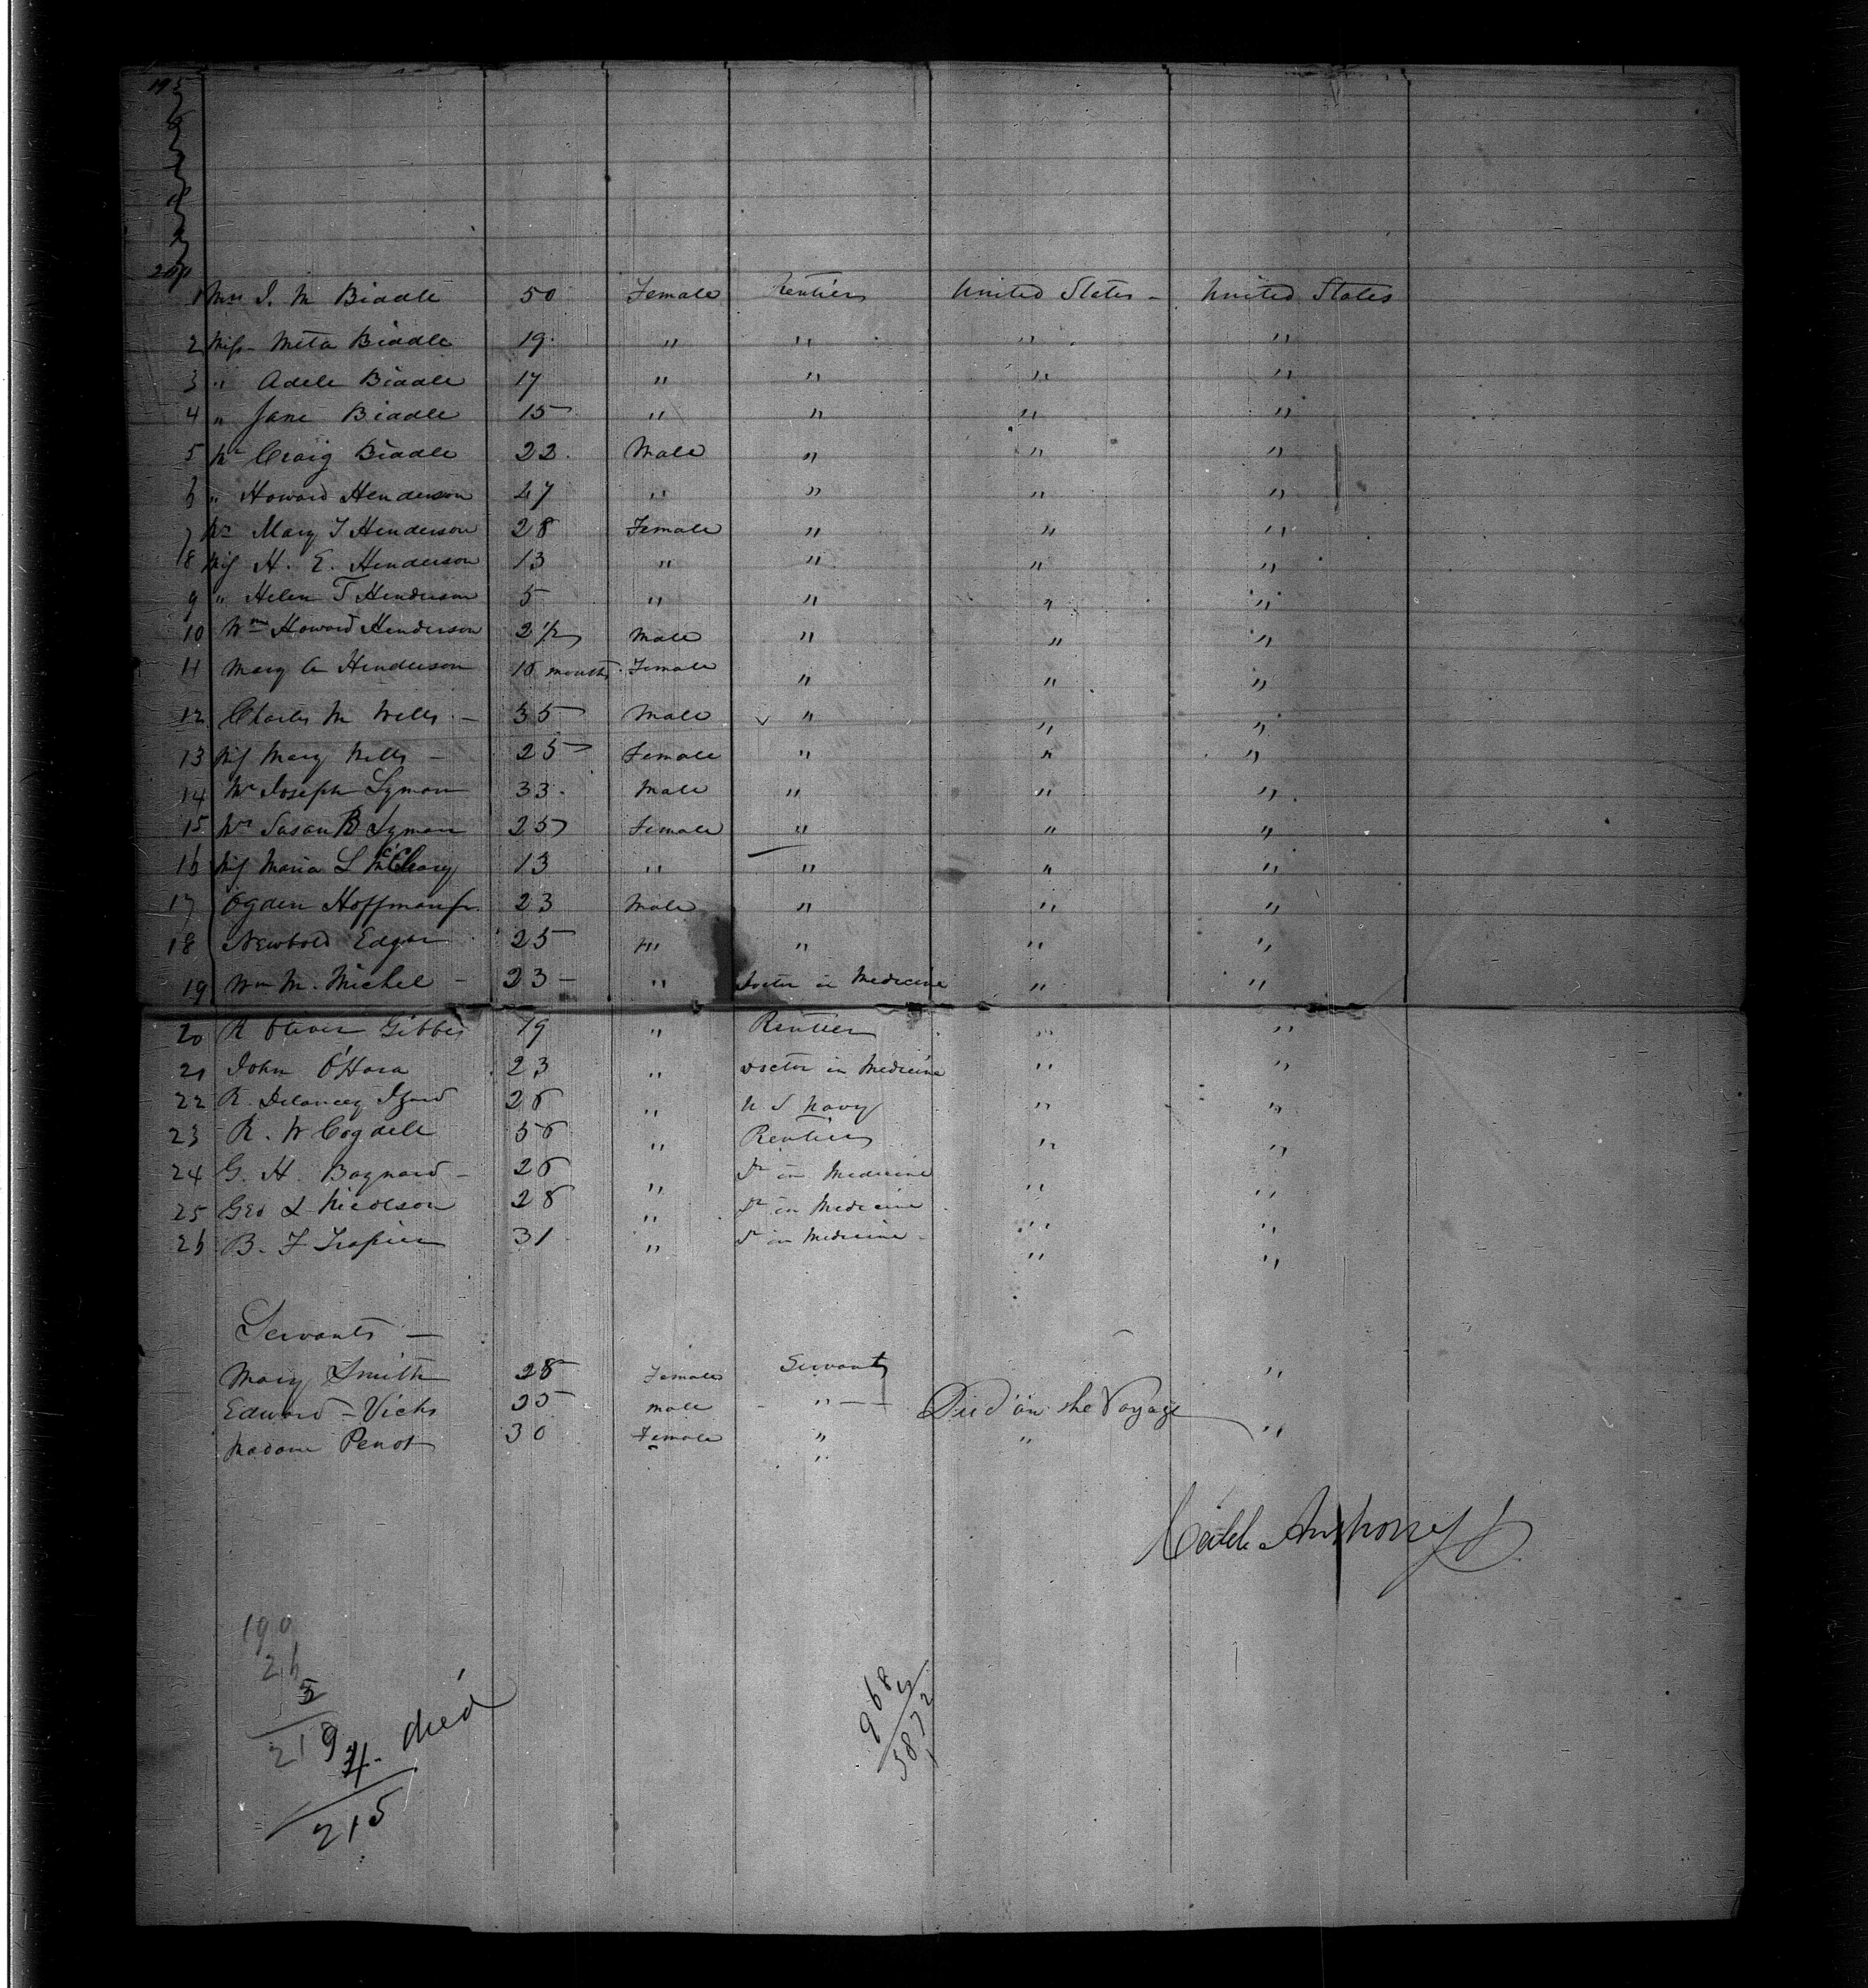 195
200
1 Mrs J. M Biddle 50 Female Rentier United States - United States
2 Miss Meta Biddle 19 " " " "
3 " Adele Biddle 17 " " " "
4 " Jane Biddle 15 " " " "
5 Mr Craig Biddle 22 Male " " "
6 " Howard Henderson 47 " " " "
7 Mrs Mary T Henderson 28 Female " " "
8 Miss H. E. Henderson 13 " " " "
9 " Helen T Henderson 5 " " " "
10 Wm Howard Henderson 2 1/2 Male " " "
11 Mary A Henderson 10 months Female " " "
12 Charles M Wells - 35 Male " " "
13 Miss Mary Wells - 25 Female " " "
14 Mr Joseph Lyman 33 Male " " "
15 Mrs Susan B Lyman 25 Female " " "
16 Miss Maria L 13 " " " "
17 Ogden Hoffman Jr. 23 Male " " "
18 Newbold Edgar 25 " " " "
19 Wm M. Michel - 23 - " Doctor in Medicine " "
20 R Oliver Gibbes 19 " Rentier " "
21 John O'Hara 23 " Doctor in Medicine " "
22 R. Delancey Izard 26 " U S Navy " "
23 R. W Cogdell 56 " Rentier " "
24 G. H. Baynard - 26 " Dr in Medicine " "
25 Geo L Nicolson 28 " Dr in Medicine " "
26 B. F Trapier 31 " Dr in Medicine - " "
Servants -
Mary Smith 28 Female Servant "
Edward - Vicks 35 male " - - Died on the Voyage
Madame Penot 30 Female " " "
"
Caleb Anthony Jr
190
26
3
219
4 died
215
968